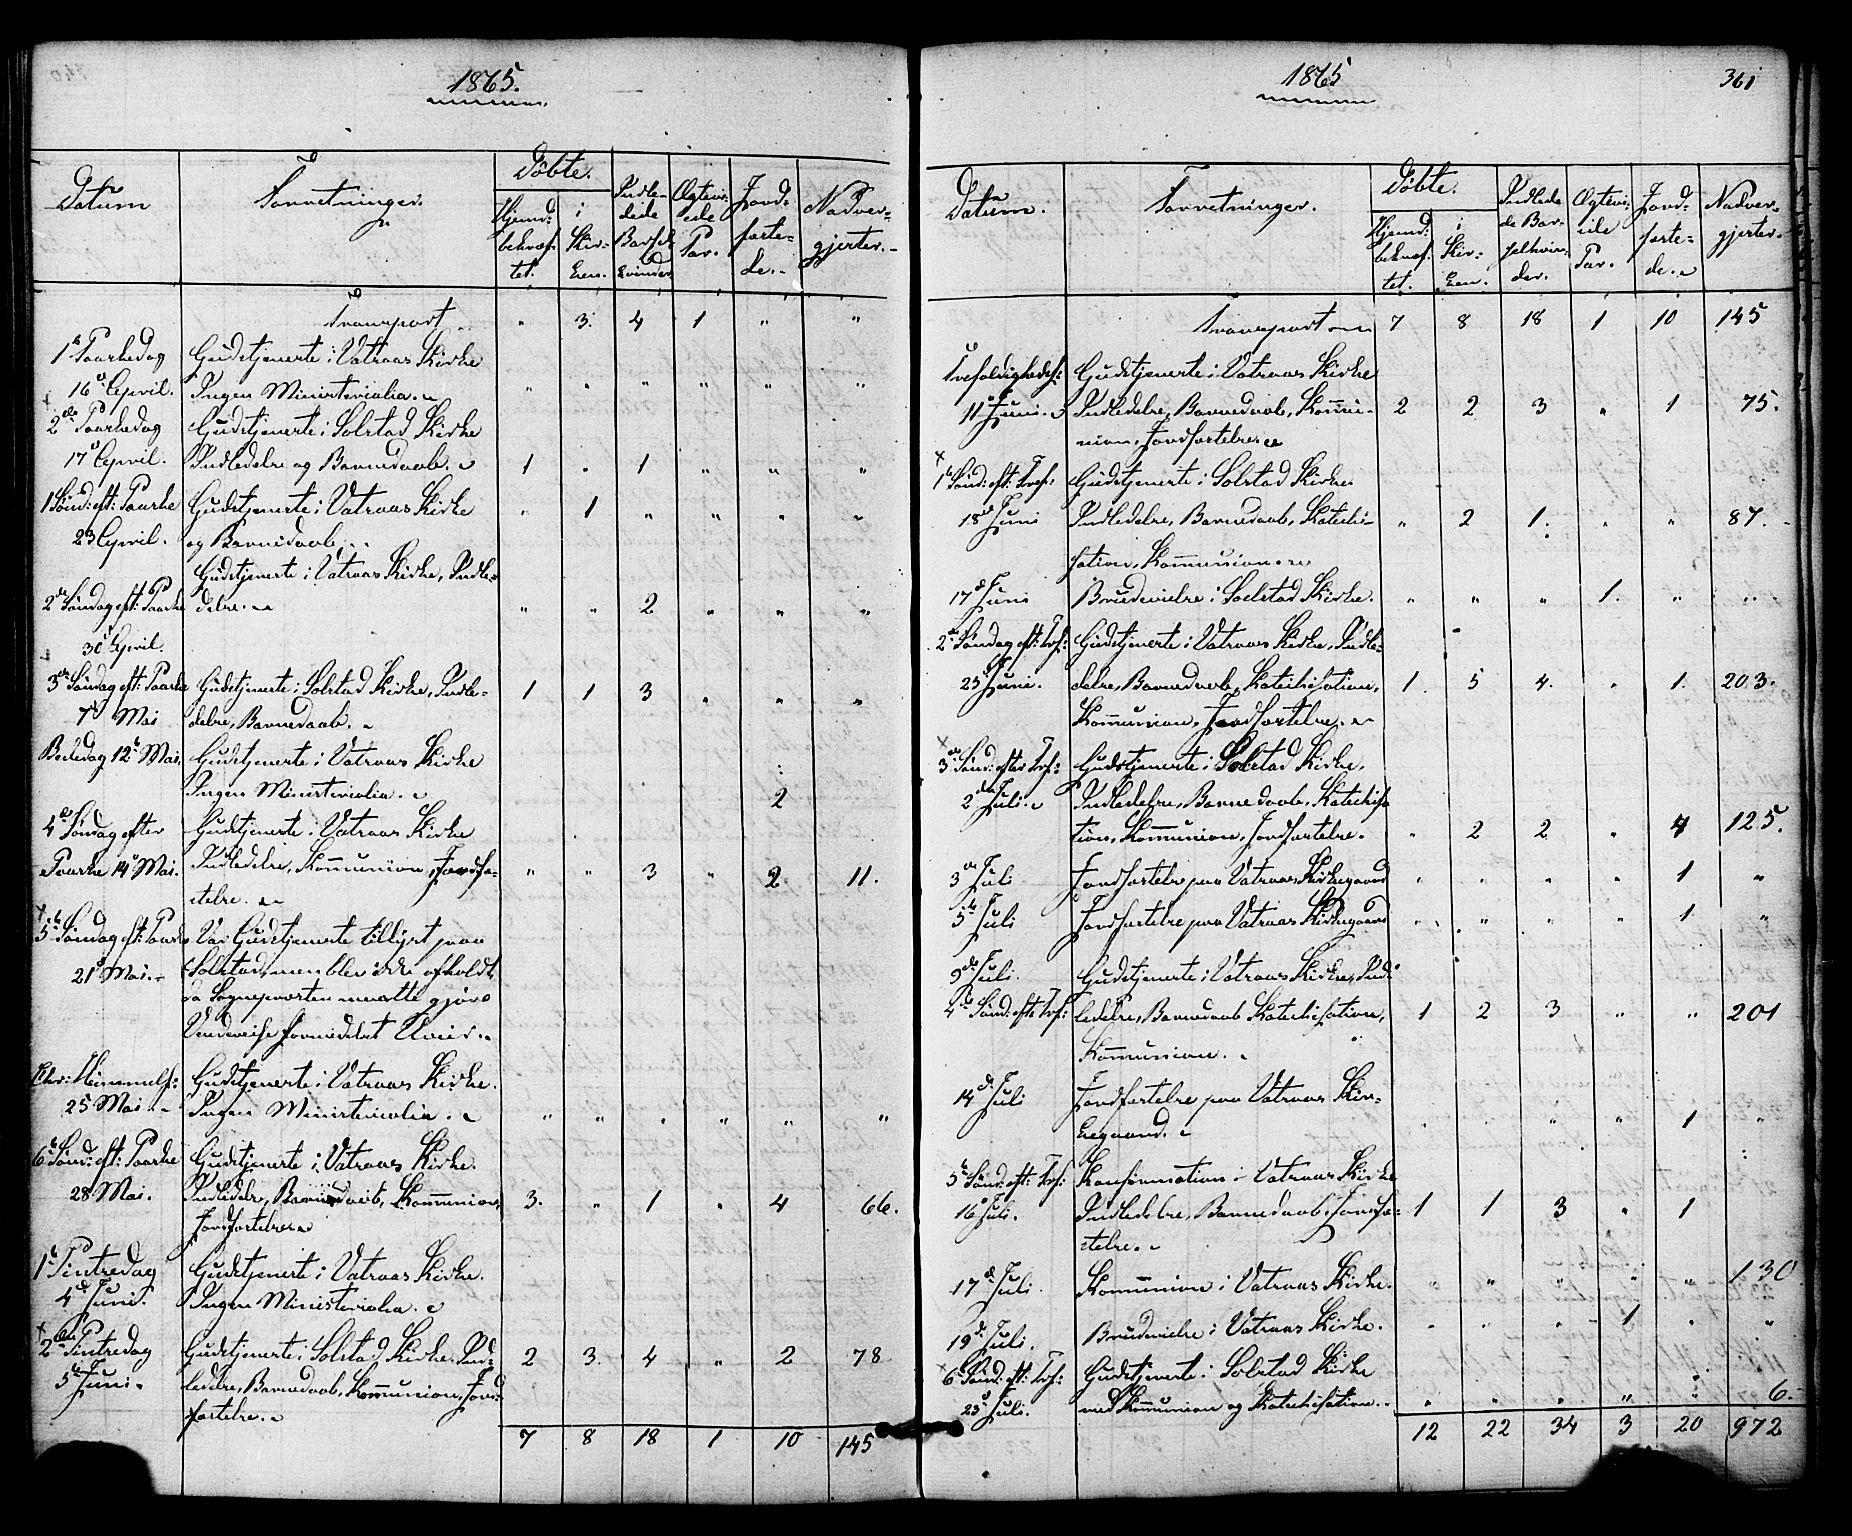 1865.
Datum
Forretninger.
Døbte.
Hjemd:
bekræf-
tet.
i
Kir-
ken.
Indle-
dede
Barsel
kvinder
Ægtevi-
ede
Par.
Jord-
fæste-
de.
Nadver-
gjester.
Transport " 3. 4 1 " "
1ste Paaskedag Gudstjeneste i Vatnaas Kirke
16de April. Ingen Ministerialia. " " " " " "
2den Paaskedag Gudstjeneste i Solstad Kirke
17de April. Indledelse og Barnedaab. 1 " 1 " " "
1 Sønd: eft: Paaske Gudstjeneste i Vatnaas Kirke " 1 " " " "
23 April. og Barnedaab.
Gudstjeneste i Vatnaas Kirke, Indle-
2den Søndag eft: Paaske delse. " " 2 " " "
30 April.
3die Søndag eft: Paaske Gudstjeneste i Solstad Kirke, Indle- 1 1 3 " " "
7de Mai delse, Barnedaab.
Bededag 12te Mai. Gudstjeneste i Vatnaas Kirke
Ingen Ministerialia. 2
4de Søndag efter Gudstjeneste i Vatnaas Kirke
Paaske 14de Mai. Indledelse, Kommunion, Jordfæ- " " 3 " 2 11.
stelse.
5te Søndag eft: Paaske Var Gudstjeneste tillyst paa
21de Mai. Solstad, men blev ikke afholdt,
da Sognepræsten maatte gjøre
Underveis formedelst Uveir.
Chr: Himmelf: Gudstjeneste i Vatnaas Kirke.
25 Mai Ingen Ministerialia. " " " " " "
6te Sønd: eft: Paaske Gudstjeneste i Vatnaas Kirke.
28 Mai. Indledelse, Barnedaab, Kommunion, 3. " 1 " 4 66.
Jordfæstelse
1ste Pintsedag Gudstjeneste i Vatnaas Kirke.
4de Juni. Ingen Ministerialia.
2den Pintsedag Gudstjeneste i Solstad Kirke. Ind- 2 3. 4 " 2 78
5te Juni. ledelse, Barnedaab, Kommunion, Jord-
fæstelse.
7 8 18 1 10 145
1865
361
Datum.
Forretninger.
Døbte.
Hjemd:
bekræf-
tet.
i
Kir-
ken.
Indlede
de Bar-
selkvin-
der.
Ægtevi-
ede
Par.
Jord-
fæste-
de.
Nadver-
gjester.
Transport 7 8 18 1 10 145
Trefoldighedsf: Gudstjeneste i Vatnaas Kirke
11 Juni. Indledelse, Barnedaab, Kommu- 2 2 3 " 1 75.
nion, Jordfæstelse.
1ste Sønd: eft: Tref: Gudstjeneste i Solstad Kirke
18de Juni Indledelse, Barnedaab, Katechi- " 2 1. " " 87.
sation, Kommunion.
17de Juni Brudevielse i Solstad Kirke. " " " 1. " "
2den Søndag eft: Trf: Gudstjeneste i Vatnaas Kirke, Indle-
25 Juni. delse, Barnedaab, Katechisation, 1. 5 4. " 1. 203.
Kommunion, Jordfæstelse.
3die Sønd: efter Tref: Gudstjeneste i Solstad Kirke,
2den Juli. Indledelse, Barnedaab, Katechisa
tion, Kommunion, Jordfæstelse. " 2 2 " 4 125.
3die Juli Jordfæstelse paa Vatnaas Kirkegaard " " " " 1 "
5te Juli Jordfæstelse paa Vatnaas Kirkegaard " " " " 1. "
9de Juli. Gudstjeneste i Vatnaas Kirke, Ind-
4de Sønd: eft: Trf: ledelse, Barnedaab Katechisation, 1 2 3 " " 201
Kommunion.
14de Juli Jordfæstelse paa Vatnaas Kir-
kegaard. " " " " 1 "
5te Sønd: eft: Trf: Konfirmation i Vatnaas Kirke
16de Juli. Indledelse, Barnedaab, Jordfæ- 1 1 3 " 1
stelse.
17de Juli. Kommunion i Vatnaas Kirke. " " " " " 130
19de Juli. Brudevielse i Vatnaas Kirke. " " " 1 " "
6te Sønd: eft: Trf: Gudstjeneste i Solstad Kirke
23de Juli. med Kommunion og Katechisation. " " " " " 6.
12 22 34 3 20 972